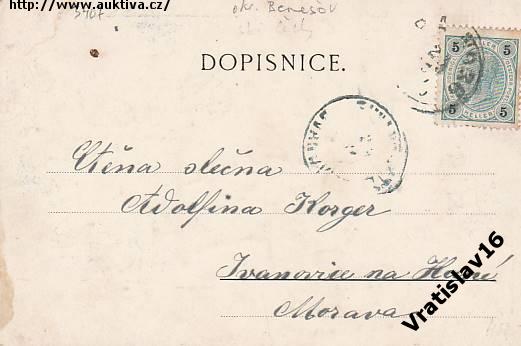 http://www.auktiva.cz/
3407
okr. Benešov
DOPISNICE.
5 HELLER 5
5 HELLER 5
Ctěna slečna
Adolfina Korger
Ivanovice na Hané
Morava
Vratislav16